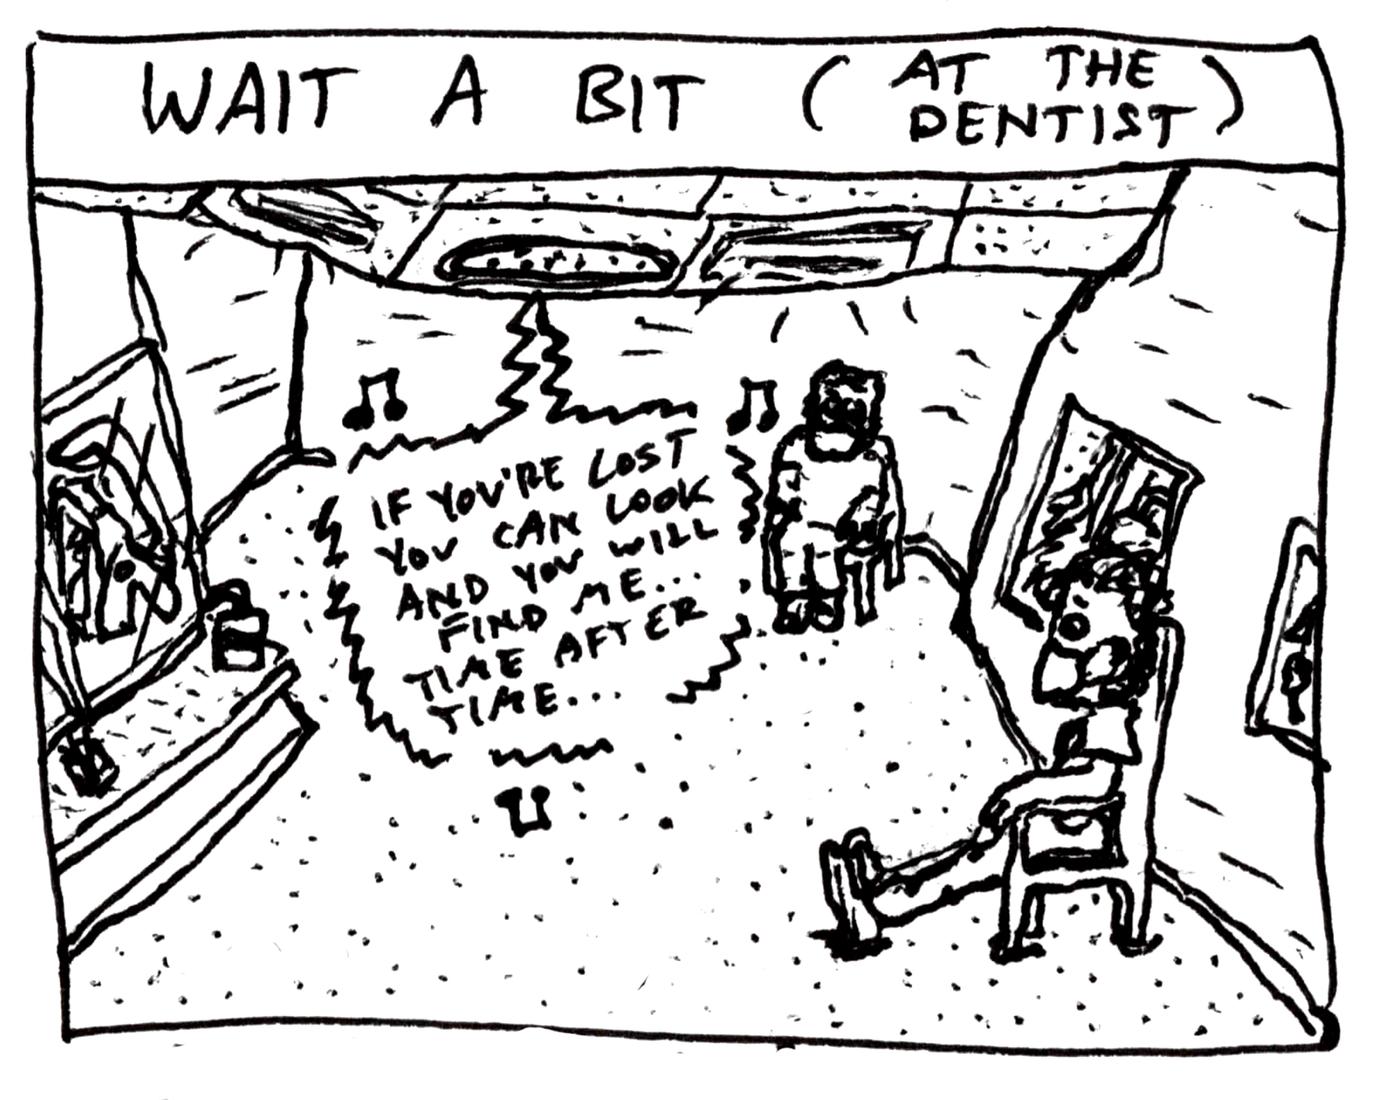 WAIT A BIT (AT THE
DENTIST)
IF YOU'RE LOST
YOU CAN LOOK
AND YOU WILL
FIND ME...
TIME AFTER
TIME...